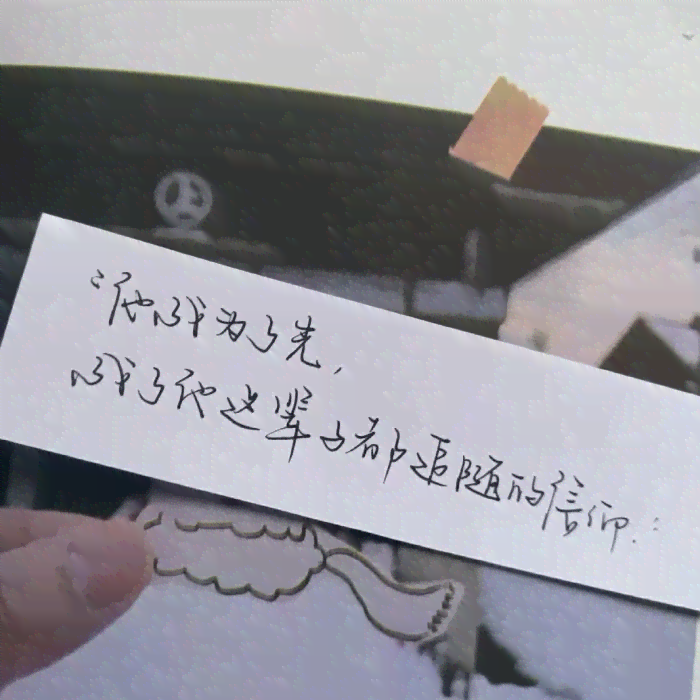 “他成为了先，
成了他这辈子都追随的信仰.”